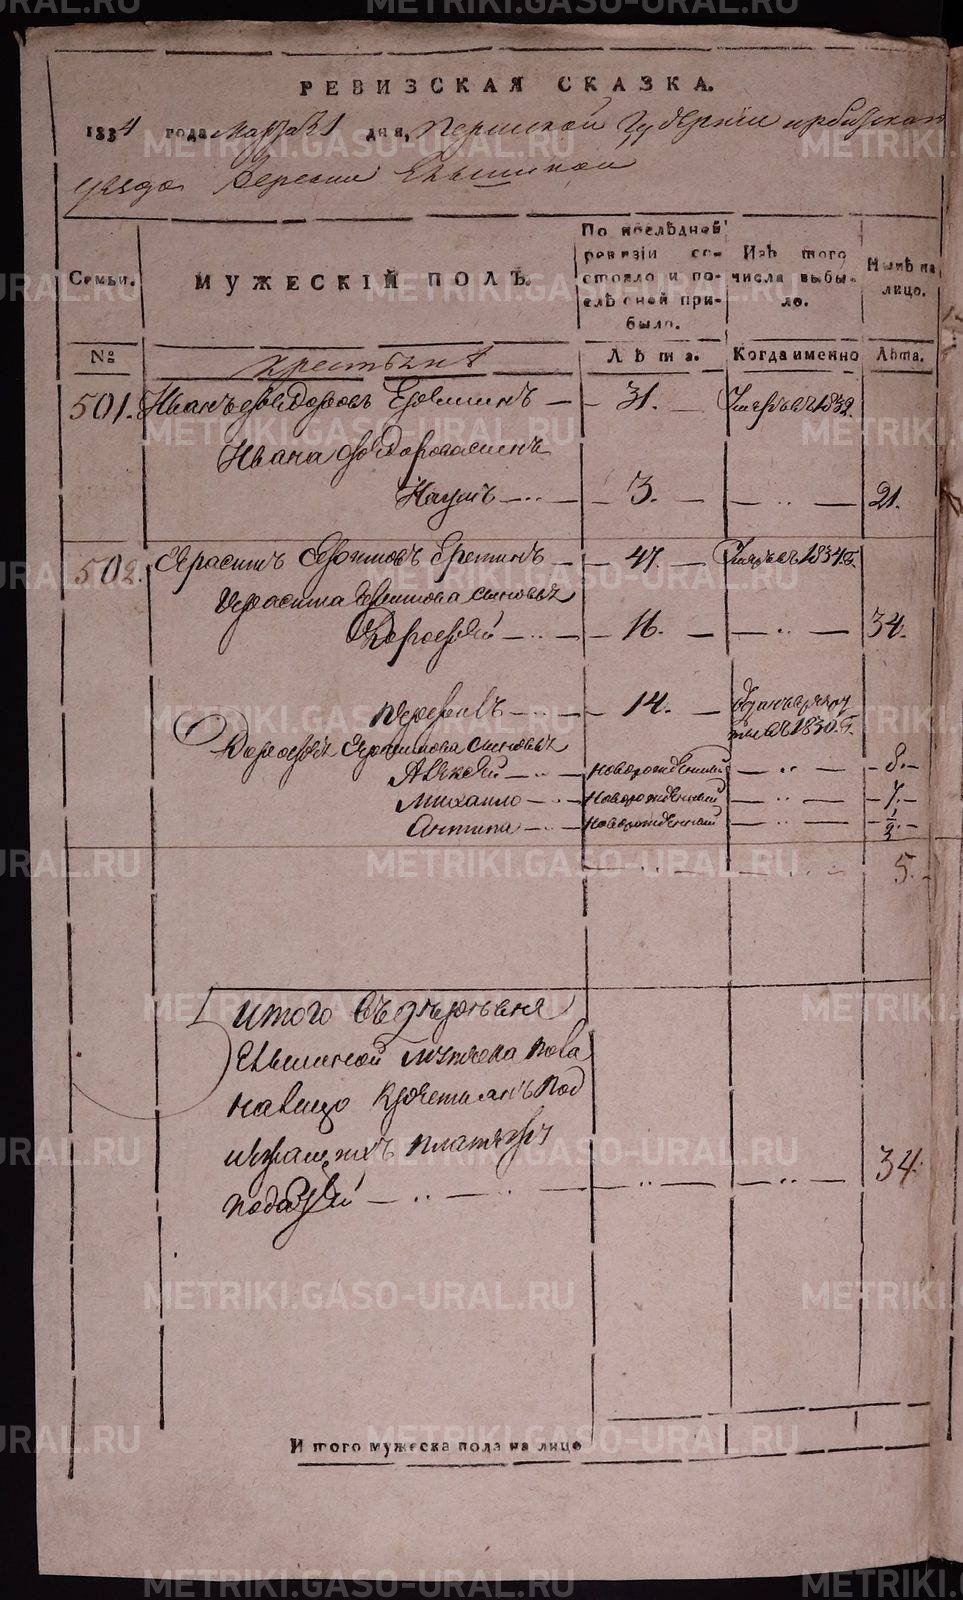 РЕВИЗСКАЯ СКАЗКА.
1834 года Марта 21 дня, Пермской Губернии Ирбитскаго
уезда Деревни Ельшиной
Семьи.
МУЖЕСКІЙ ПОЛЪ.
По послѣдней ревизіи состояло и послѣ оной прибыло.
Изъ того числа выбыло.
Нынѣ на лицо.
№
крестьянѣ
Лѣта.
Когда именно
Лѣта.
501. Иванъ Ѳедоровъ 31. Умеръ въ 1832
Ивана Ѳедорова сынъ
Наумъ 3. 21.
502. Герасимъ Еремин 47. Умеръ въ 1834 г.
Герасима сыновья
Дорофей 16. 34.
14. въ 1830 г.
Дорофея Герасимова сыновья
Алексей новорожденный 8.
Михаило новорожденный 7.
Антипа новорожденный 1/2
5.
Итого въ деревне
Ельшиной мужеска пола
на лицо крестьянъ под
лежащихъ платежу
податей 34.
Итого мужеска пола на лицо
METRIKI.GASO-URAL.RU